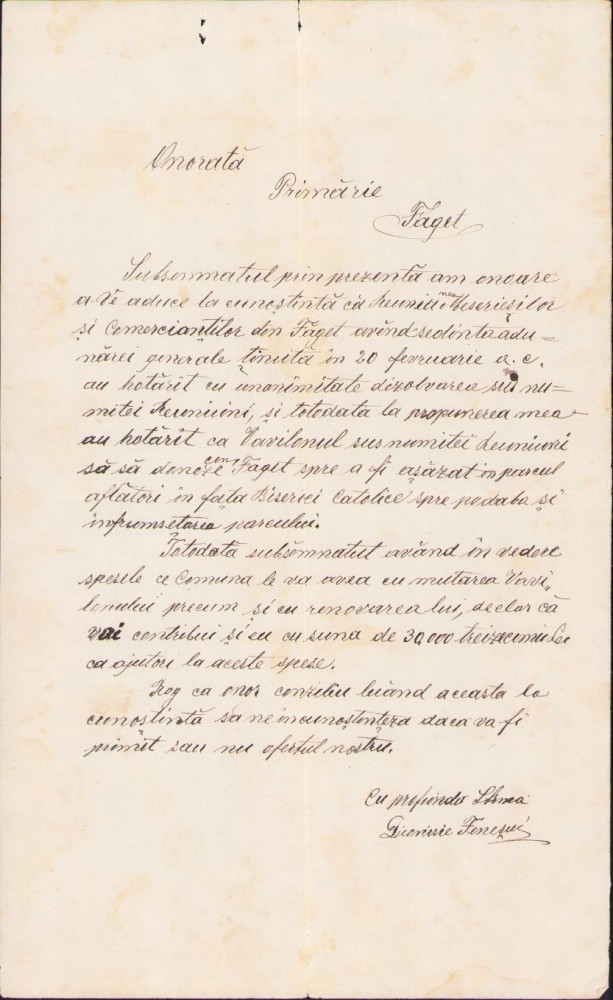 Onorată
Primărie
Făget
Subsemnatul prin prezentă am onoare
a Vă aduce la cunoștintă că Reuniunea Meserieșilor
și Comercianților din Făget având sedinta adu-
nărei generale ținuită în 20 fevruarie a.c.
au hotărit cu unonimitate dizolvarea sus nu-
mitei Reuniuni, și totodată la propunerea mea
au hotărit ca Vavilonul susnumitei Reuniuni
să să doneze com. Făget spre a fi așăzat in parcul
aflători în fața Biserici Catolice spre podaba și
infrumsetarea parcului.
Totodată subsemnatut având în vedere
spesele ce Comuna le va avea cu mutarea Vavi„
lonului precum și cu renovarea lui, declar că
voi contribui și eu cu suna de 30,000 treizecimii Lei
ca ajutori la aceste spese.
Rog ca onor conziliu luând aceasta la
cunostintă sa ne incunoștinteza daca va fi
primit sau nu ofertul nostru.
Cu profundo Stima
Dionisie